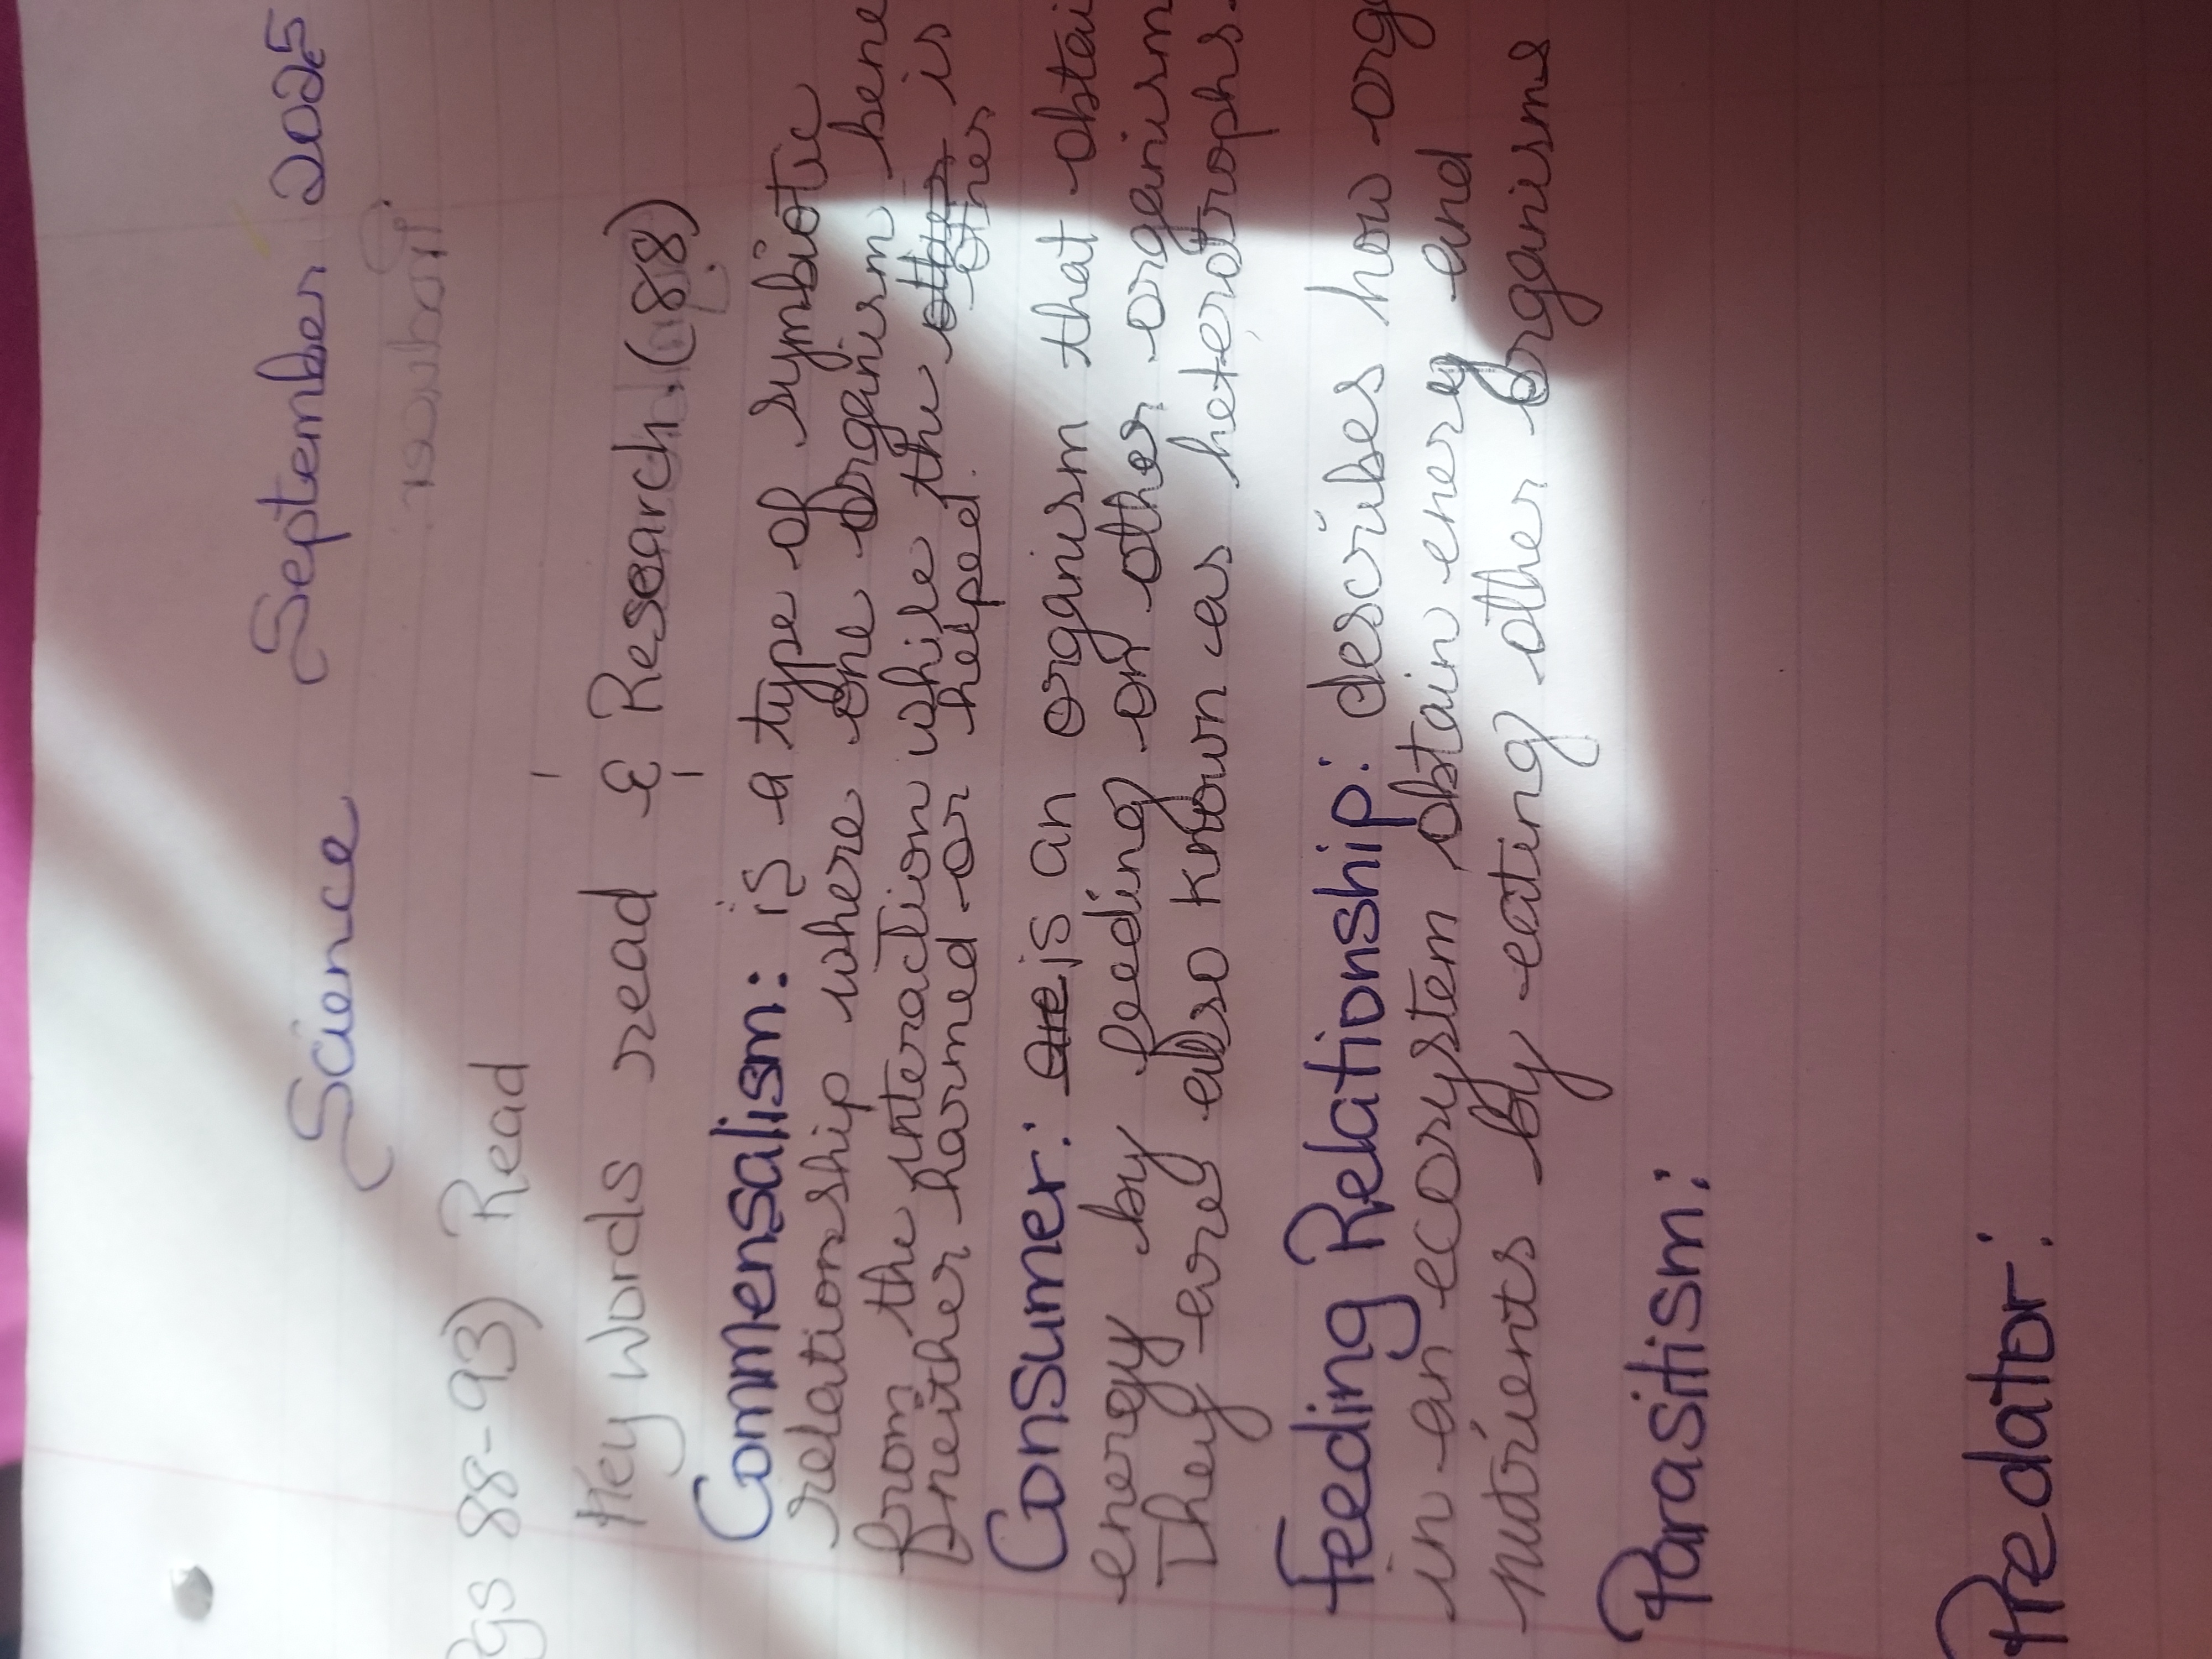 Science September 2025
Pgs 88-93) Read
Key words read & Research (88)
Commensalism: is a type of symbiotic
relationship where one organism bene
from the interaction while the other is
neither harmed or helped. other
Consumer: is an organism that obtai
energy by feeding on other organism
They are also known as heterotrophs.
Feeding Relationship: describes how org
in an ecosystem obtain enery and
nutrients by eating other organisms
Parasitism:
Predator: